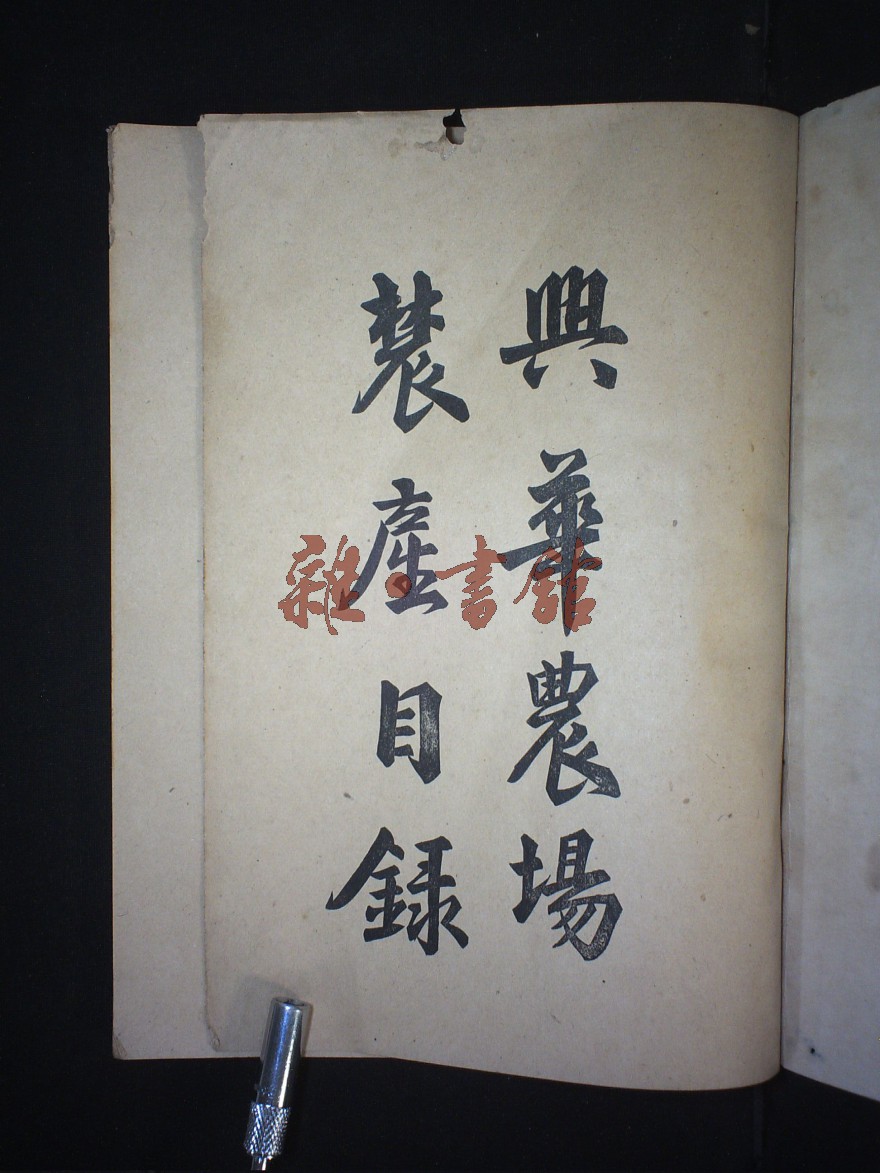 興華農場
辳產目錄
雜·書館